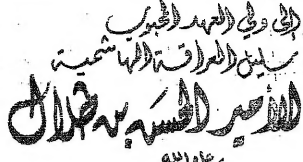 إلى ولي العهد المحبوب
سليل العراقة الهاشمية
الأمير الحسن بن طلال
رعاه الله